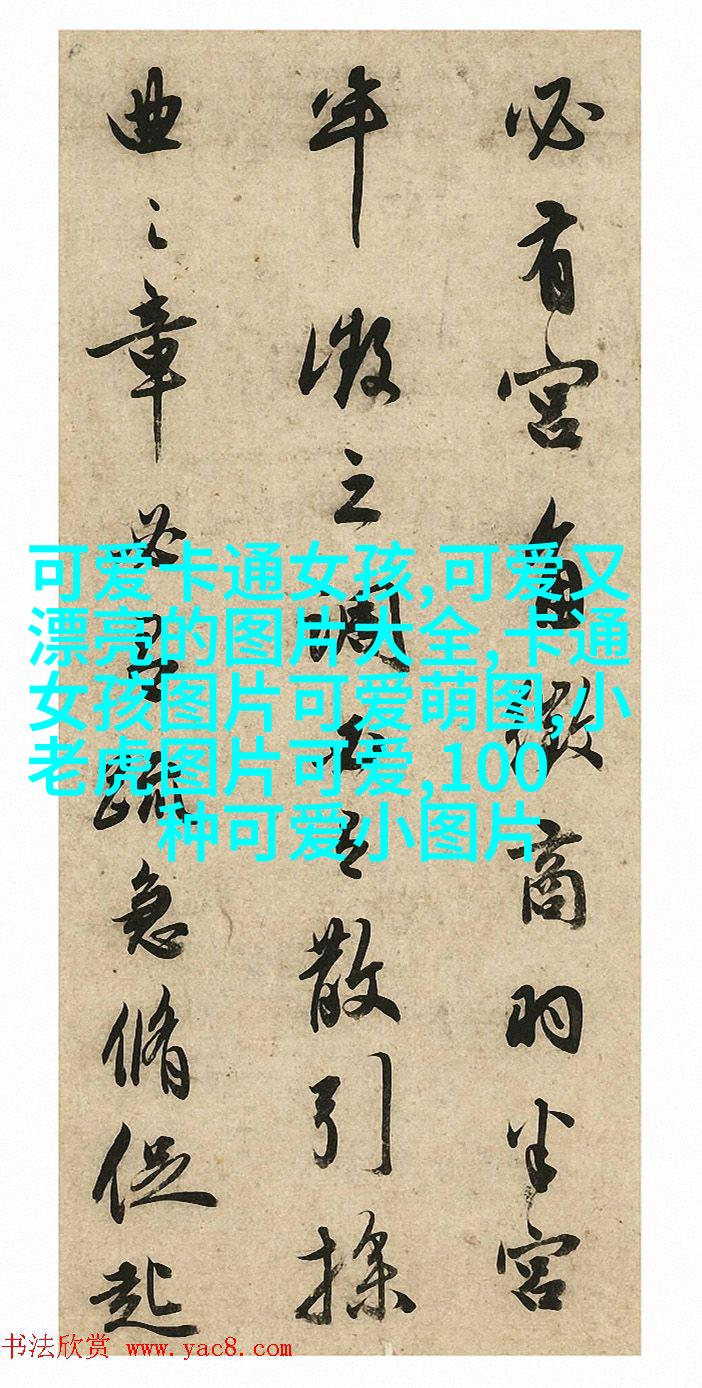 必有宮角徵商羽半宮
半徵之調散引操
曲之章必疏急脩促起
可爱卡通女孩,可爱又
漂亮的图片大全,卡通
女孩图片可爱萌图,小
老虎图片可爱,100
种可爱小图片
书法欣赏 www.yac8.com